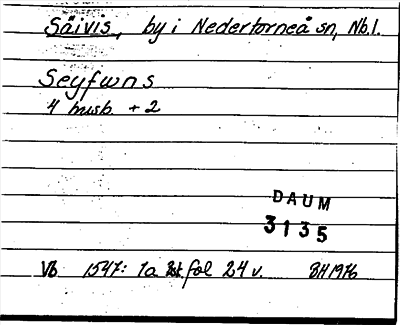 Säivis, by i Nedertorneå sn, Nb.l.
Seyfwns
4 husb. + 2
DAUM
3135
Vb 1547: 1a fol 24 v. BH 1976